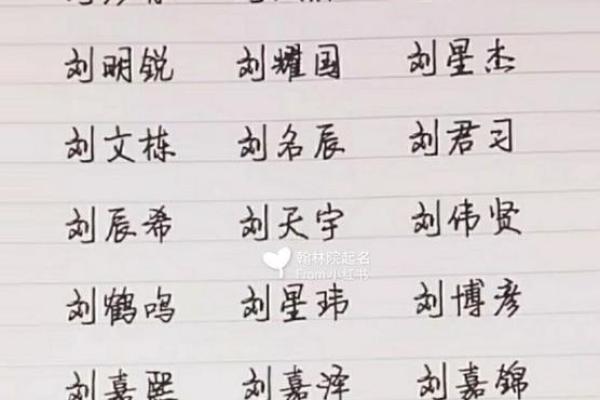 刘明锐 刘耀国 刘星杰
刘文栋 刘名辰 刘君习
刘辰希 刘天宇 刘伟贤
翰林院起名
From小红书
刘鹤鸣 刘星玮 刘博彦
刘嘉熙 刘嘉泽 刘嘉锦